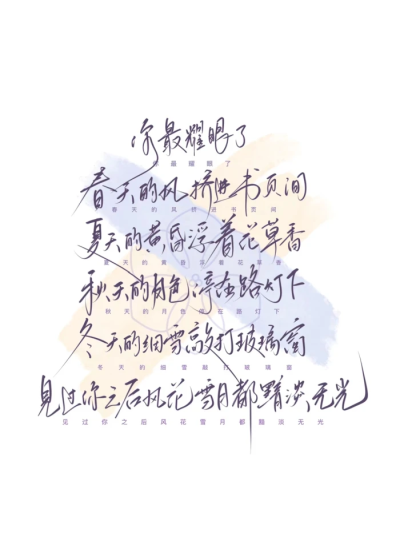 你最耀眼了
你最耀眼了
春天的风挤进书页间
春天的风挤进书页间
夏天的黄昏浮着花草香
夏天的黄昏浮着花草香
秋天的月色淳在路灯下
秋天的月色淳在路灯下
冬天的细雪敲打玻璃窗
冬天的细雪敲打玻璃窗
见过你之后风花雪月都黯淡无光
见过你之后风花雪月都黯淡无光